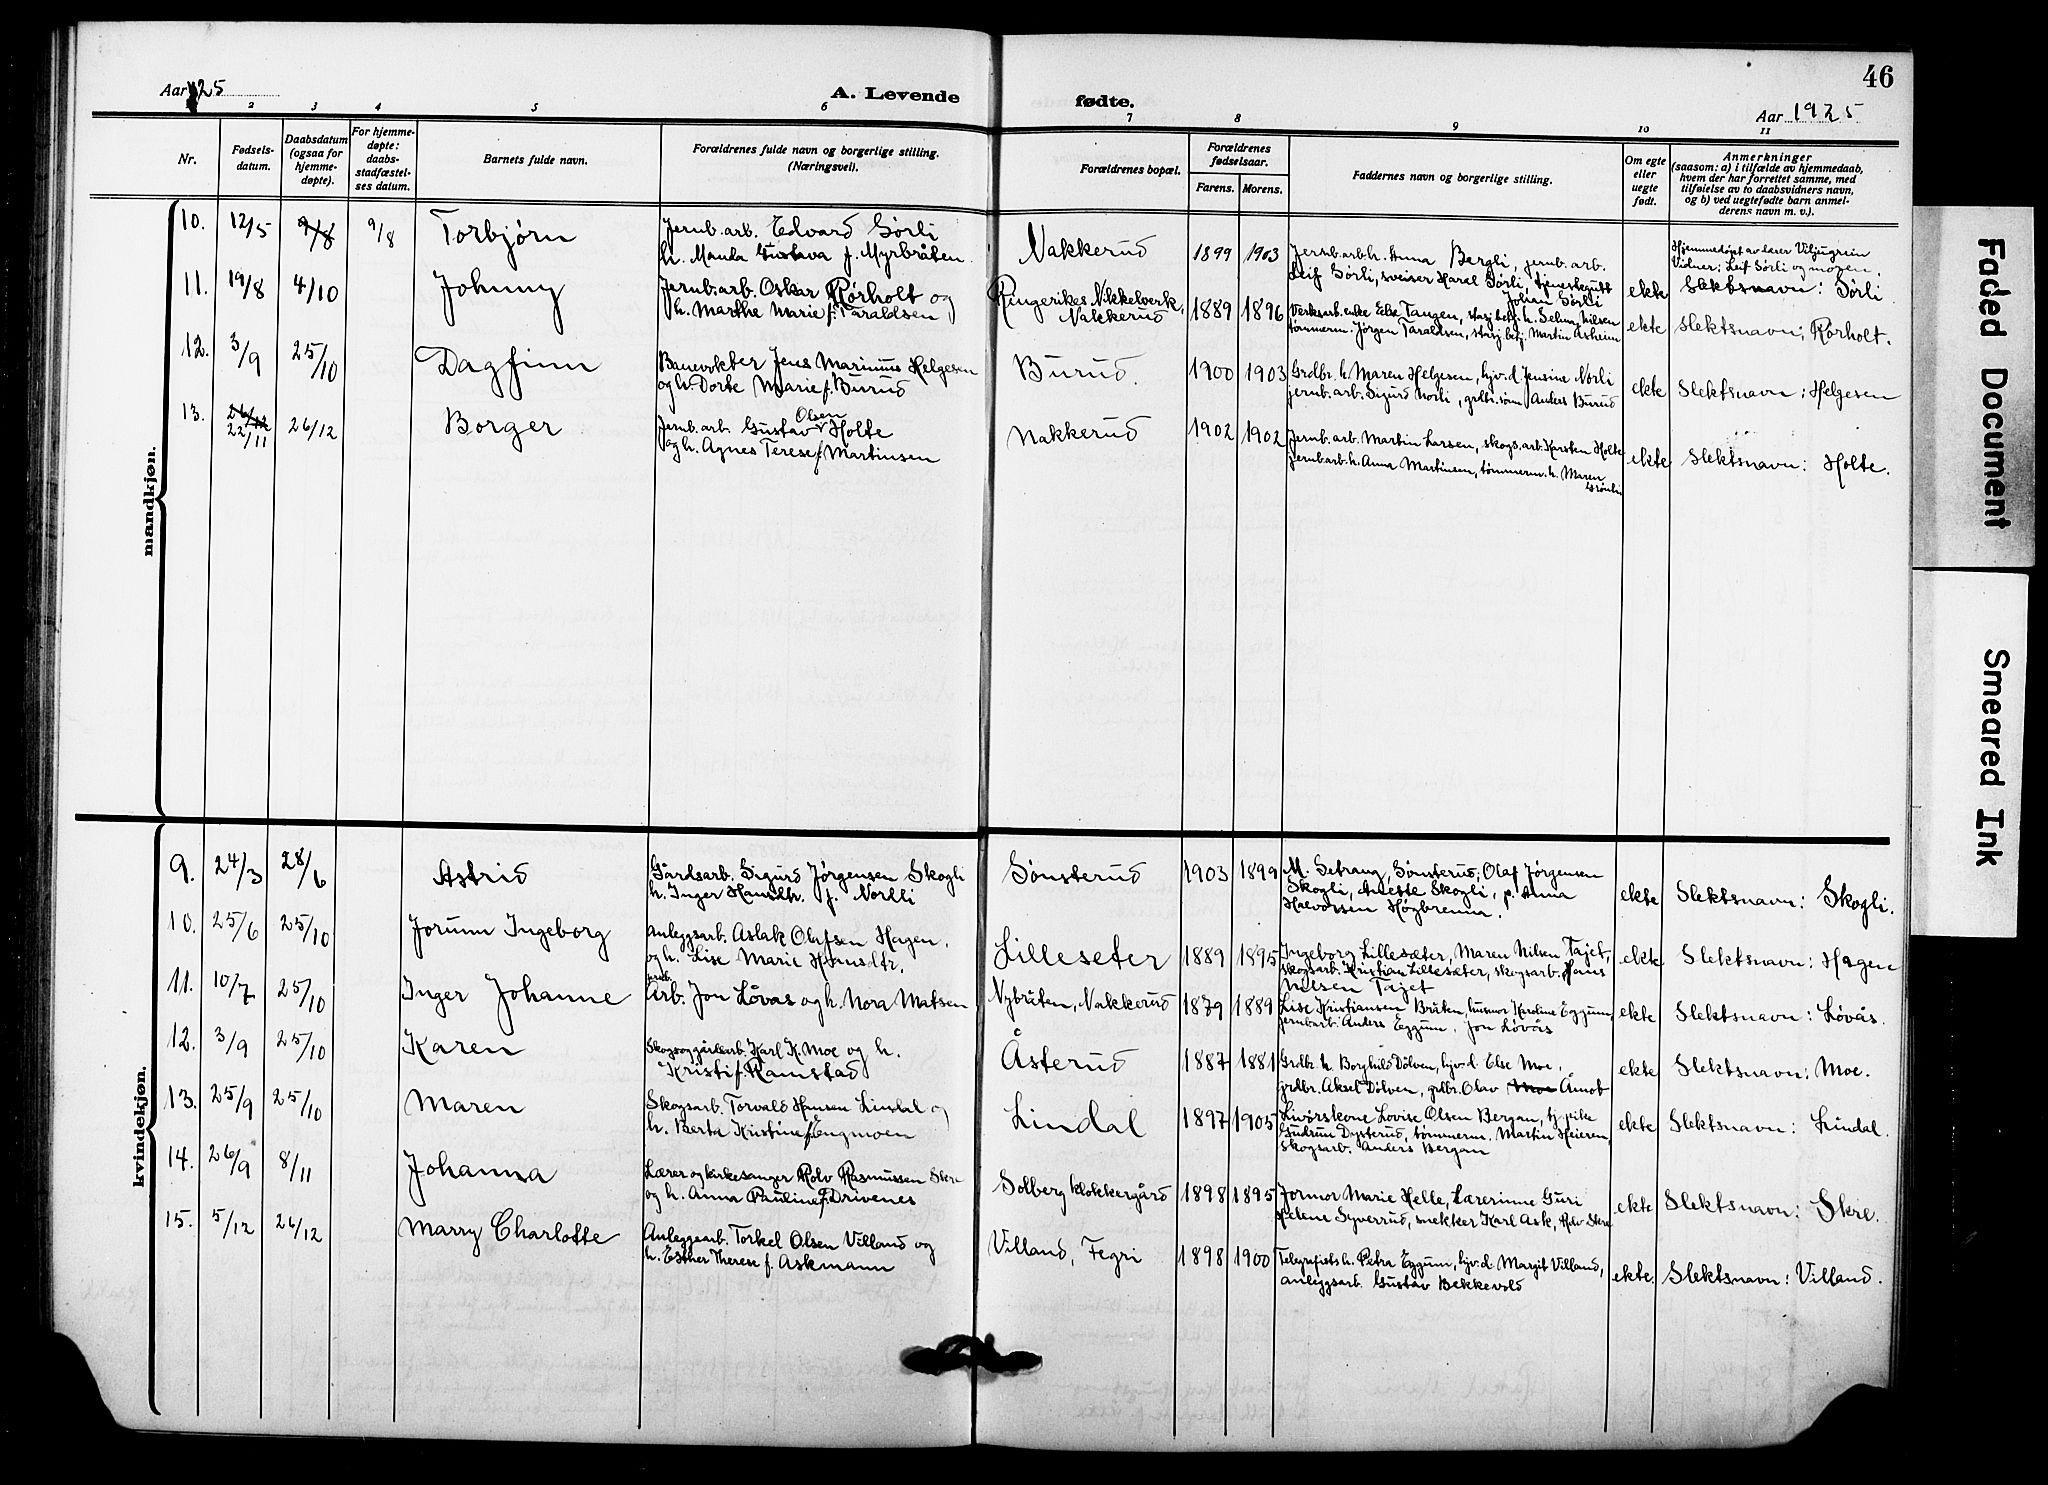 Aar 1925
A. Levende
fødte.
46
Aar 1925
1 2 3 4 5 6 7 8 9 10 11
Nr.
Fødsels-
datum.
Daabsdatum
(ogsaa for
hjemme-
døpte).
For hjemme-
døpte:
daabs-
stadfæstel-
ses datum.
Barnets fulde navn.
Forældrenes fulde navn og borgerlige stilling.
(Næringsvei).
Forældrenes bopæl.
Forældrenes
fødselsaar.
Farens. Morens.
Faddernes navn og borgerlige stilling.
Om egte
eller
uegte
født.
Anmerkninger
(saasom: a) i tilfælde av hjemmedaab,
hvem der har forrettet samme, med
tilføielse av to daabsvidners navn,
og b) ved uegtefødte barn anmel-
derens navn m. v.).
mandkjøn.
10. 12/5 9/8 9/8 Torbjørn
Jernb. arb. Edvard Sørli
h. Manda Gustava f. Myrbråten
Nakkerud 1899 1903
Jernb.arb.h. Anna Bergli, jernb. arb.
Leif Sørli, sveiser Haral Sørli, tjenestegutt
Johan Sørli
ekte
Hjemmedøpt av lærer Viljugrein
Vidner: Leif Sørli og moren.
Slektsnavn: Sørli
11. 19/8 4/10 Johnny
Jernb. arb. Oskar Rørholt og
h. Marthe Marie f. Taraldsen
Ringerikes Nikkelverk,
Nakkerud
1889 1896
Verksarb. enke Else Tangen, stasj.betj. h. Selma Nilsen
tømmerm. Jørgen Taraldsen, stasj.betj. Martin Askeim
ekte Slektsnavn: Rørholt.
12. 3/9 25/10 Dagfinn
Banevokter Jens Marinius Helgesen
og h. Dorte Marie f. Burud
Burud. 1900 1903
Grdbr. h. Maren Helgesen, hjv.d. Jensine Norli
jernb. arb. Sigurd Norli, grdbr. sønn Anders Burud
ekte Slektsnavn: Helgesen
13. 26/12
22/11 26/12 Borger
Jernb. arb. Gustav Olsen Holte
og h. Agnes Terese f. Martinsen
Nakkerud 1902 1902
Jernb. arb. Martin Larsen, skogs.arb. Karsten Holte
jernb.arb.h. Anna Martinsen, tømmerm. h. Maren
Grønli
ekte Slektsnavn: Holte.
kvindekjøn.
9. 24/3 28/6 Astrid
Gårdsarb. Sigurd Jørgensen Skogli
h. Inger Hansdtr. f. Nordli
Sønsterud 1903 1899
M. Setrang, Sønsterud, Olaf Jørgensen
Skogli, Anette Skogli, p. Anna
Halvorsen Høgbrenna.
ekte Slektsnavn: Skogli.
10. 25/6 25/10 Jorunn Ingeborg
Anleggsarb. Aslak Olafsen Hagen.
og h. Lise Marie Hansdtr.
Lilleseter 1889 1895
Ingeborg Lillesæter, Maren Nilsen Tajet,
skogsarb. Kristian Lillesæter, skogsarb. Hans
Nilsen Tajet
ekte Slektsnavn: Hagen
11. 10/7 25/10 Inger Johanne
jernb.
Arb. Jon Løvås og h. Nora Matsen
Nybråten, Nakkerud 1879 1889
Lise Kristiansen Bråten, husmor Karoline Eggum,
jernbarb. Anders Eggum, Jon Løvås
ekte Slektsnavn: Løvås.
12. 3/9 25/10 Karen
Skogs og gårdsarb. Karl K. Moe og h.
Kristi f. Ramstad
Åsterud 1887 1881
Grdbr. h. Borghild Dølven, hjv.d. Else Moe,
grdbr. Aksel Dølven, grdbr. Olav Moe Åmot
ekte Slektsnavn: Moe.
13. 25/9 25/10 Maren
Skogsarb. Torvald Hansen Lindal og
h. Berta Kristine f. Engmoen
Lindal 1897 1905
Lovise Olsen Bergan, tj.pike
Gudrun Dysterud, tømmerm. Martin Heieren,
skogsarb. Anders Bergan
ekte Slektsnavn: Lindal.
14. 26/9 8/11 Johanna
Lærer og kirkesanger Rolv Rasmussen Skre
og h. Anna Pauline f. Drivenes
Solberg klokkergård 1898 1895
Jormor Marie Helle, Lærerinne Guri
Helene Syverrud, snekker Karl Ask, Rolv Skre
ekte Slektsnavn: Skre.
15. 5/12 26/12 Marry Charlotte
Anleggsarb. Torkel Olsen Villand og
h. Esther Therese f. Askmann
Villand, Tegri 1898 1900
Telegrafists h. Petra Eggum, hjv.d. Margit Villand,
anleggsarb. Gustav Bekkevold
ekte. Slektsnavn: Villand.
Faded Document
Smeared Ink